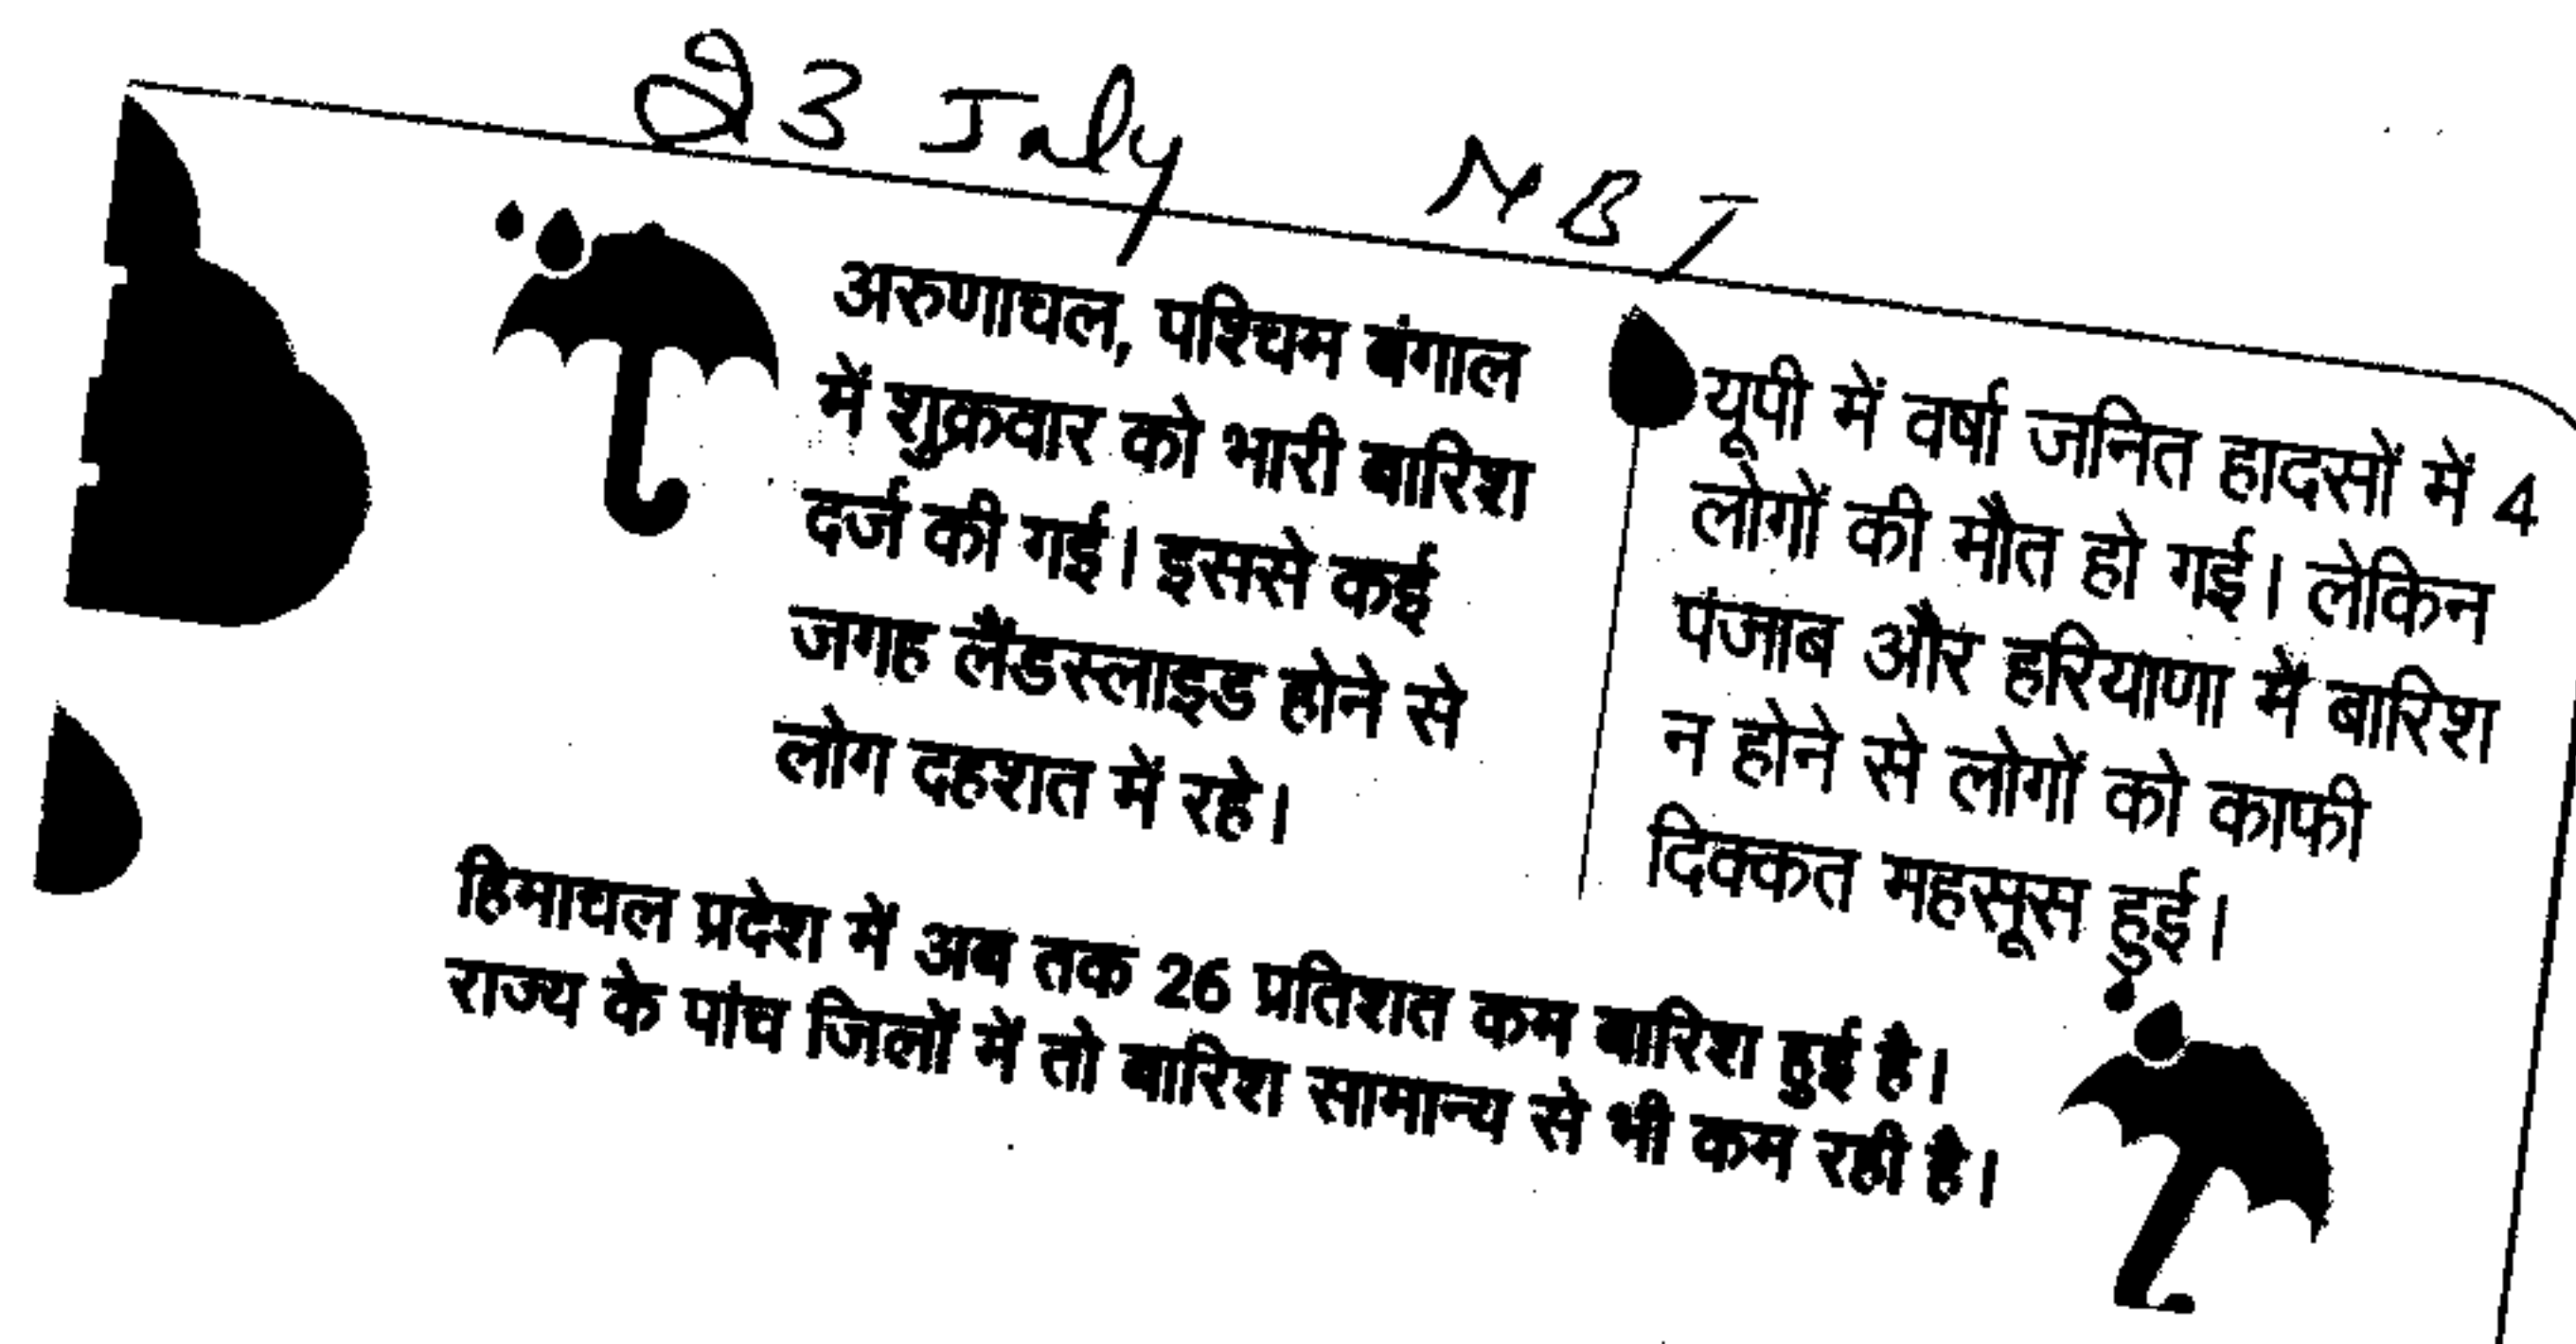 23 July NBT
अरुणाचल, पश्चिम बंगाल
में शुक्रवार को भारी बारिश
दर्ज की गई। इससे कई
जगह लैंडस्लाइड होने से
लोग दहशत में रहे।
यूपी में वर्षा जनित हादसों में 4
लोगों की मौत हो गई। लेकिन
पंजाब और हरियाणा में बारिश
न होने से लोगों को काफी
दिक्कत महसूस हुई।
हिमाचल प्रदेश में अब तक 26 प्रतिशत कम बारिश हुई है।
राज्य के पांच जिलों में तो बारिश सामान्य से भी कम रही है।